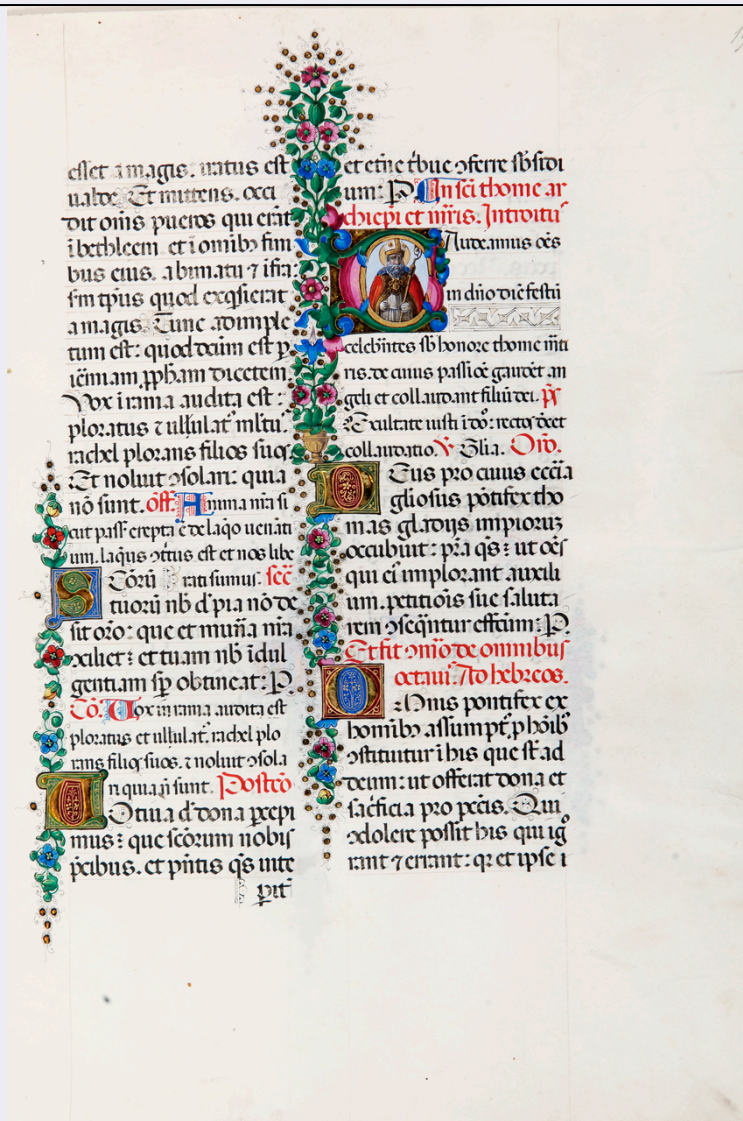 esset a magis. iratus est
ualde. Et mittens. occi
dit om̄s pueros qui erāt
ī bethleem et ī omībꝯ fini
bus eius. a bimatu ⁊ īfra:
scd̄m tp̄us quod exq̄sierat
a magis. Tunc adimple
tum est: quod dc̄um est p
ieremiam ꝓpḣam dicetem.
Vox ī rama audita est:
ploratus ⁊ ululat᷒ ml̄tu.
rachel plorans filios suos.
Et noluit ꝯsolari: quia
nō sunt. off. Anima nr̄a si
cut pass᷒ erepta ē de laq̄o uenāti
um. laqus ꝯt̄tus est et nos libe
rati sumus: sec̄
Scōrū
tuorū nb̄ d. pia nō de
sit or̄o: que et mun̄a nr̄a
ꝯciliet: et tuam nb̄ īdul
gentiam sp̄ obtineat: P.
Cō. Vox in rama audita est
ploratus et ululat᷒. rachel plo
rans filios suos. ⁊ noluit ꝯsola
ri quia n̄ sunt. Postcō
Votiua d. dona p̄cepi
mus: que scōrum nobis
p̄cibus. et p̄ntis q̄s uite
pit᷒
et et̄ne t̄bue ꝯferre sb̄sidi
um: P. In sc̄i thome ar
chiep̄i et mr̄is. Introitu᷒
Gaudeamus oēs
in dn̄o diē festū
celeb̄ntes sb̄ honore thome mr̄ti
ris. de cuius passiōe gaudēt an
geli et collaudant filiū dei. p̄s
Exultate iusti ī dn̄o: rectos decet
collaudatio. V Glia. Oro.
Deus pro cuius ecc̄ia
gl̄iosus pōtifex tho
mas gladijs impioruꝫ
occubuit: pr̄a q̄s: ut oēs
qui eiꝰ implorant auxili
um. petitiōis sue saluta
rem ꝯseq̄ntur effectum: P.
Et fit ꝯmō de omnibus
octauis. Ad hebreos.
Omnis pontifex ex
homībꝯ assumpt᷒. p̱ hōibꝯ
ꝯstituitur ī his que st̄ ad
deum: ut offerat dona et
sac̄ficia pro pc̄c̄is. Qui
ꝯdolere possit his qui ig̊
rant ⁊ errant: qr̄ et ipse ī